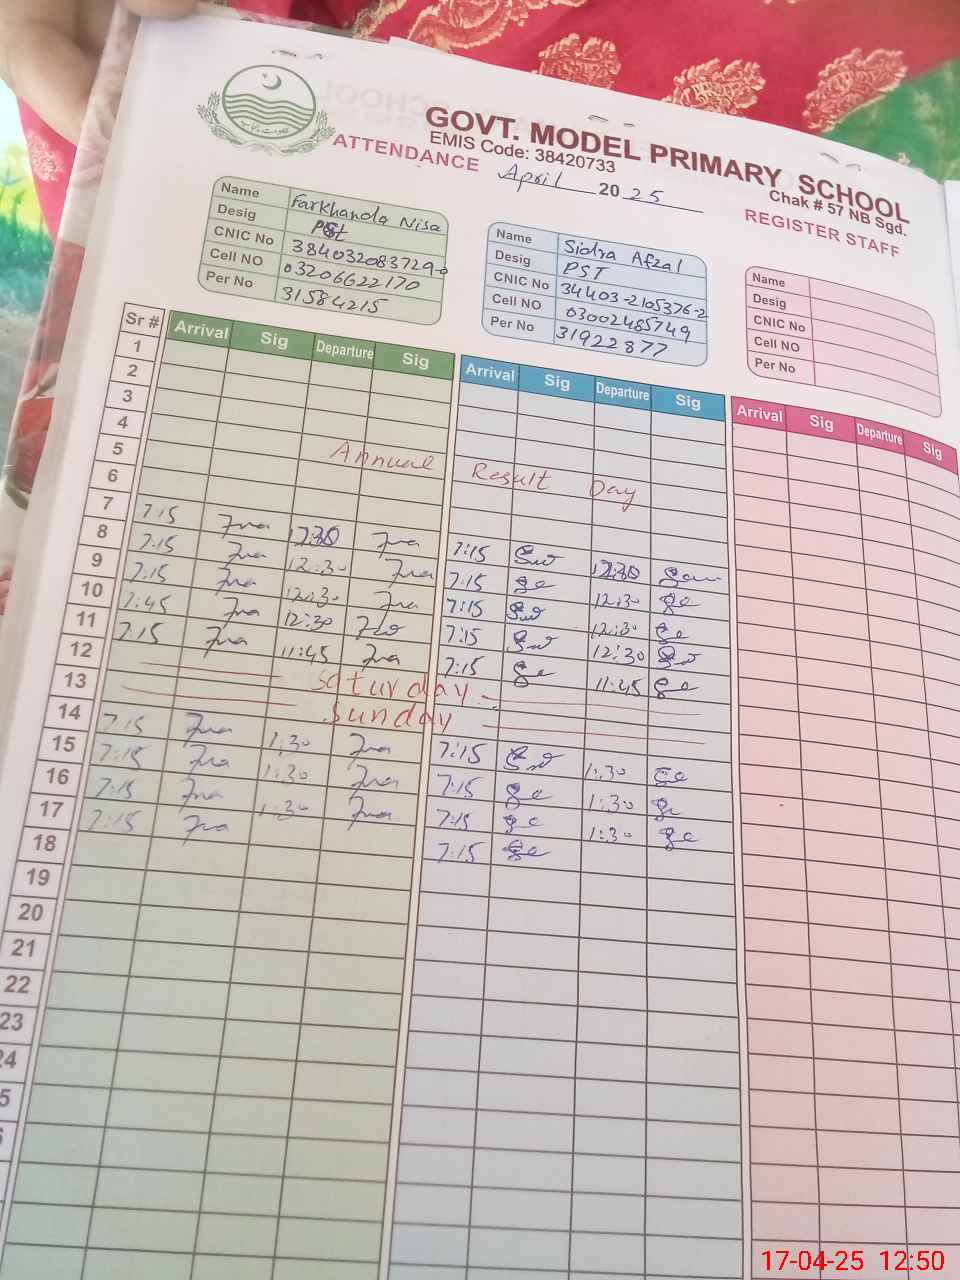 GOVT. MODEL PRIMARY SCHOOL
EMIS Code: 38420733
Chak # 57 NB Sgd.
ATTENDANCE April 2025 REGISTER STAFF
Name Farkhanda Nisa
Desig PST
CNIC No 384032083729-0
Cell NO 03206622170
Per No 31584215
Name Sidra Afzal
Desig PST
CNIC No 34403-2105376-2
Cell NO 03002485749
Per No 31922877
Name
Desig
CNIC No
Cell NO
Per No
Sr # Arrival Sig Departure Sig Arrival Sig Departure Sig Arrival Sig Departure Sig
1
2
3
4
5 Annual Result Day
6
7 7:15 12:30 7:15 12:30
8 7:15 12:30 7:15 12:30
9 7:15 12:30 7:15 12:30
10 7:45 12:30 7:15 12:30
11 7:15 11:45 7:15 11:45
12 Saturday
13 Sunday
14 7:15 1:30 7:15 1:30
15 7:15 1:30 7:15 1:30
16 7:15 1:30 7:15 1:30
17 7:15 7:15
18
19
20
21
22
23
24
5
17-04-25 12:50